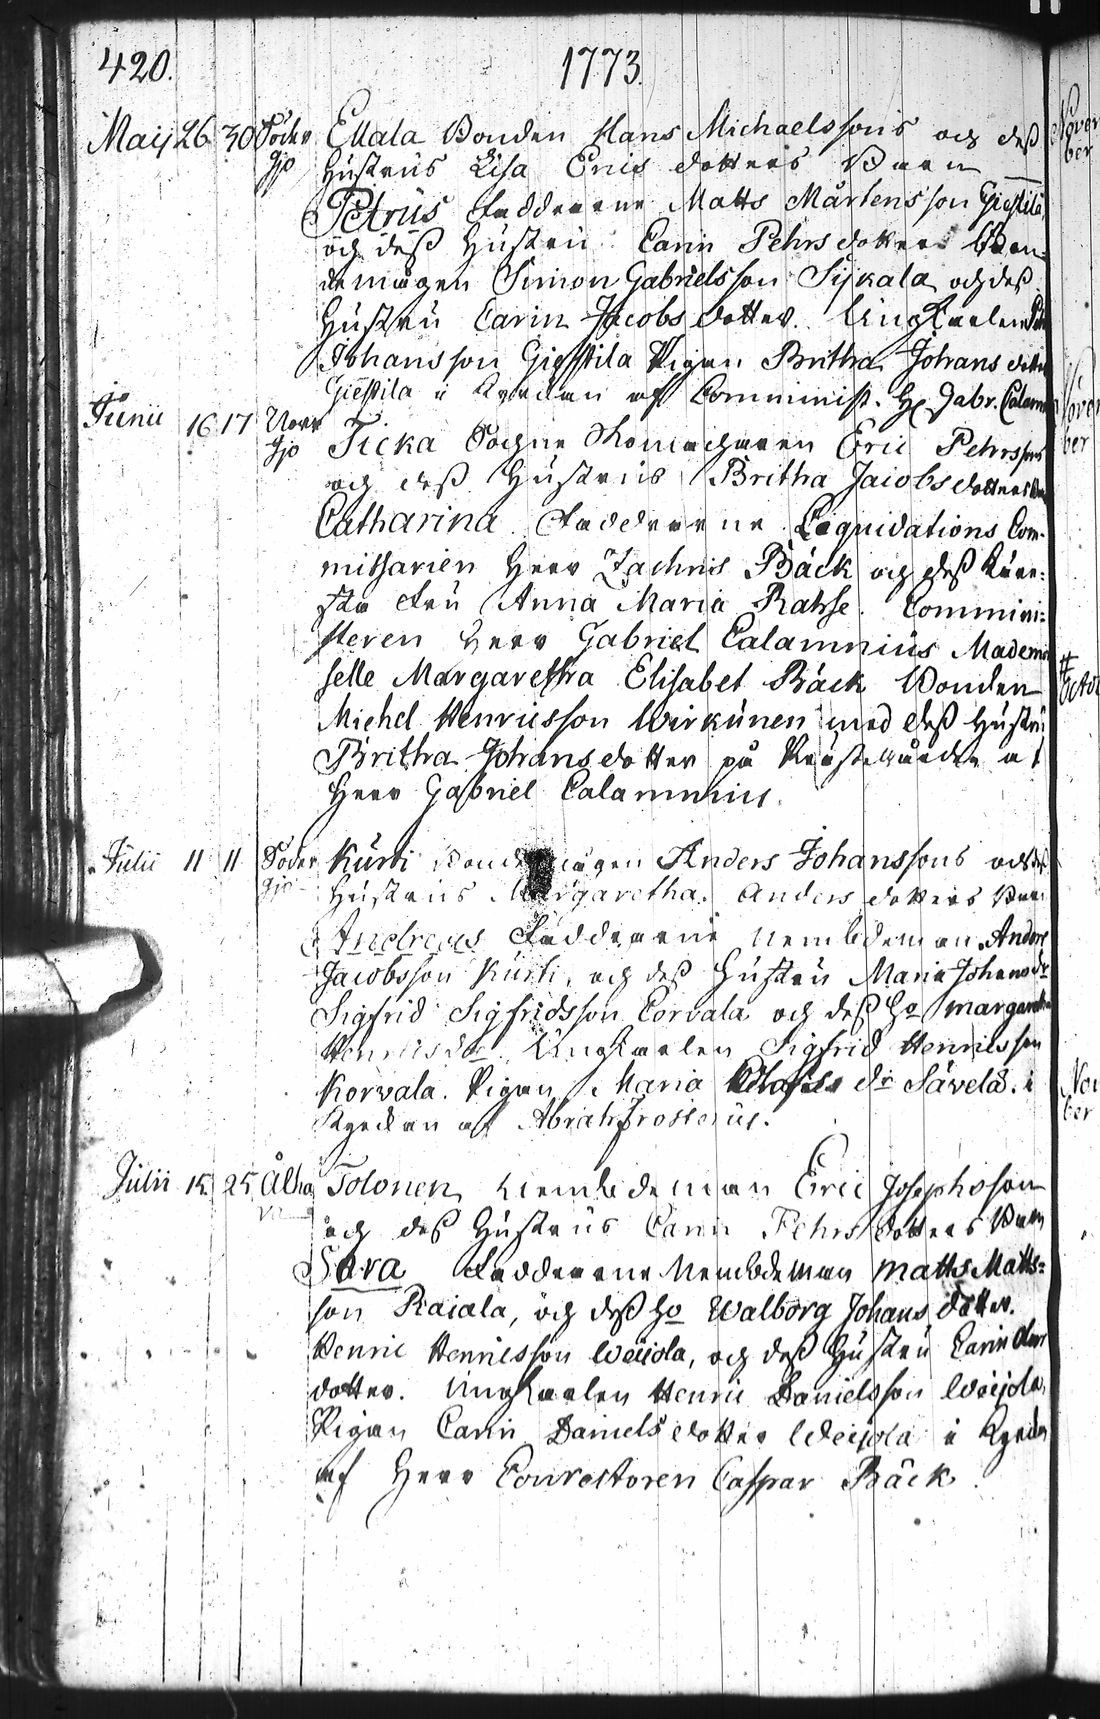 420. 1773.
Maij 26 30 Söder gjo Ellala Bonden Hans Michaelssons och deß
Hustrus Lisa Erics dotters Barn
Petrus Faddrarne Matts Mårtensson Gieſtila
och deß Hustru Carin Pehrsdotter Bon-
demågen Simon Gabrielsson Sijkala och deß
Hustru Carin Jacobs dotter. Ungkarlen
Johansson Gieſtila Pigan Britha Johans dotter
Gieſtila i Kyrckan af Comminist. H. Gabr. Calamn
Junii 16 17 Norr gjo Ticka Sockne Skomakaren Eric Pehrssons
och deß Hustrus Britha Jacobsdotters
Catharina Faddrarne Liquidations Com-
missarien Herr Zachris Bäck och deß Käre-
sta Fru Anna Maria Rahse. Commini-
steren Herr Gabriel Calamnius Madem
selle Margaretha Elisabet Bäck Bonden
Michel Henricsson Wirkunen med deß Hustru
Britha Johansdotter på Prästegården af
Herr Gabriel Calamnius.
Julii 11 11 Söder gjo Kurti Anders Johanssons och deß
Hustrus Margaretha Anders dotters Barn
Andreas Faddrarne Nembdeman Anders
Jacobsson Kurti, och deß Hustru Maria Johansdr
Sigfrid Sigfridsson Corvala och deß Ho margaretha
Henricsdr. Ungkarlen Sigfrid Henricsson
Korvala. Pigan Maria dr Sävelä. i
Kyrckan af Abrah Frosterus.
Julii 15 25 Tolonen Nembdeman Eric Josephsson
och deß Hustrus Carin Pehrs dotters Barn
Sara Faddrarne Nembdeman Matts Matts-
son Raiala, och deß Ho Walborg Johans dotter.
Henric Henricsson Weijola, och deß Hustru Carin
dotter. Ungkarlen Henric Danielsson Weijola,
Pigan Carin Daniels dotter Weijola i Kyrckan
af Herr Conrectoren Caspar Bäck.